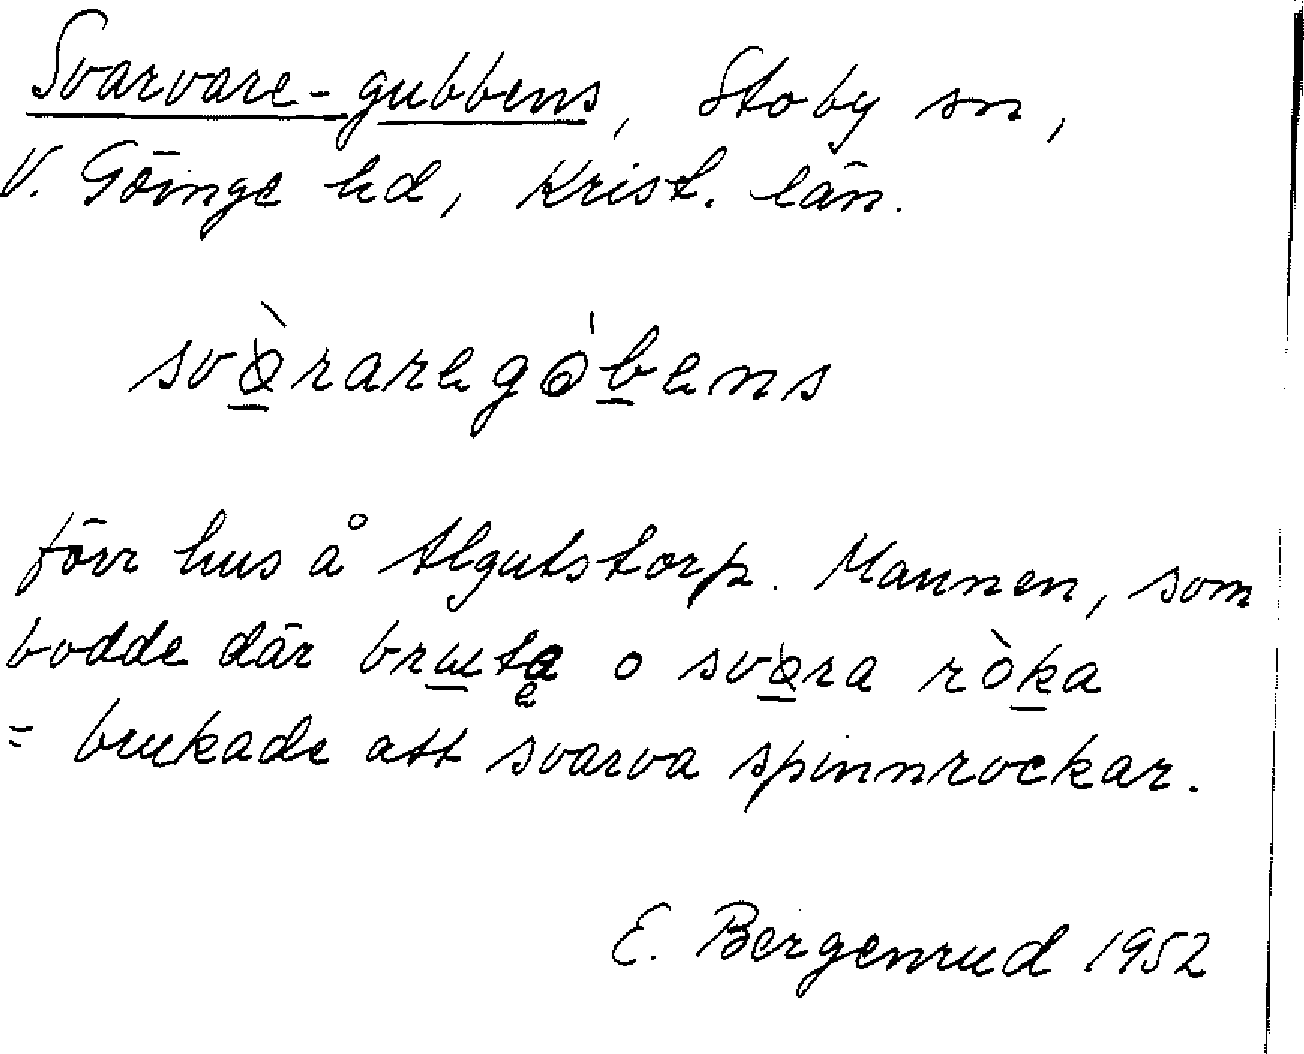 Svarvare-gubbens, Stoby sn,
V. Göinge hd, Krist. län.
svɑ̀raregȯbens
förr hus å Algutstorp. Mannen, som
bodde där o svɑ̀ra ròka
= brukade att svarva spinnrockar.
E. Bergenrud 1952